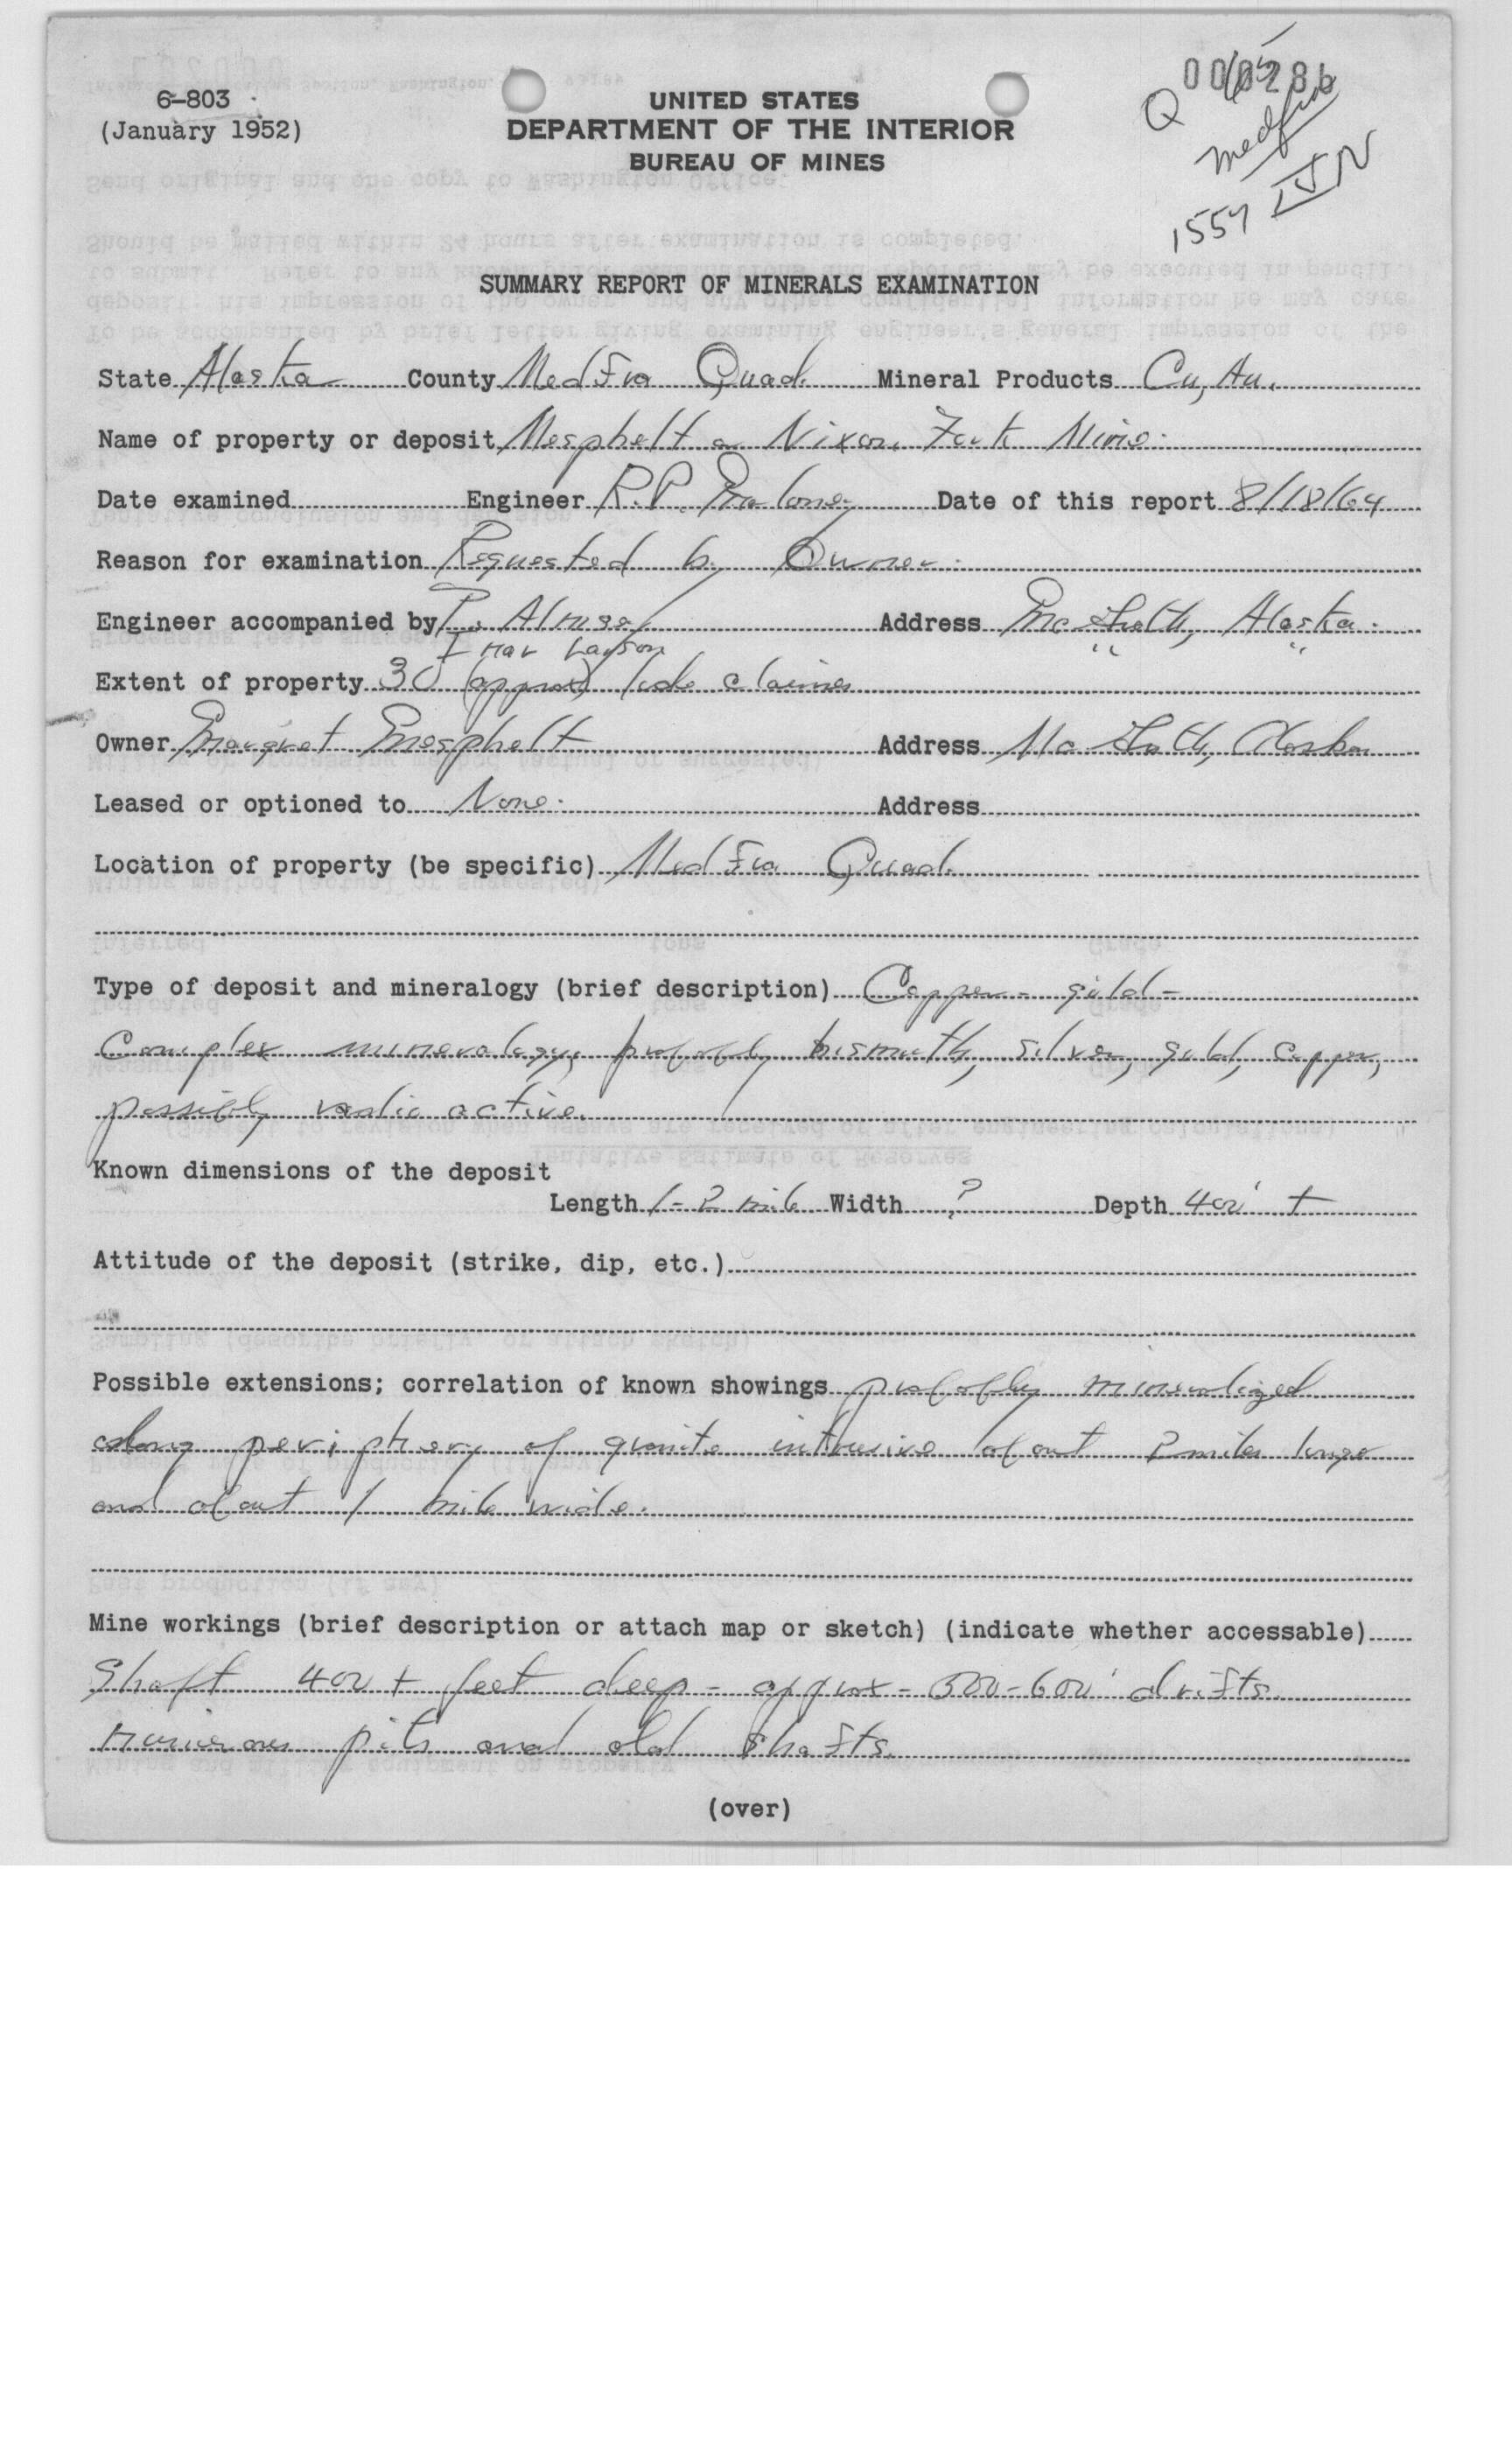 000286
65
Q
Medfra
1557 IVN
6-803
(January 1952)
UNITED STATES
DEPARTMENT OF THE INTERIOR
BUREAU OF MINES
SUMMARY REPORT OF MINERALS EXAMINATION
State Alaska County Medfra Quad. Mineral Products Cu, Au.
Name of property or deposit Mespelt or Nixon Fork Mine.
Date examined Engineer R.P. Maloney Date of this report 8/18/64
Reason for examination Requested by Owner.
Engineer accompanied by P. Address McGrath, Alaska.
" "
Extent of property 30 (approx) lode claims
Owner Margret Mespelt Address McGrath, Alaska
Leased or optioned to None. Address
Location of property (be specific) Medfra Quad.
Type of deposit and mineralogy (brief description) Copper - gold -
Complex mineralogy, probably bismuth, silver, gold, copper,
possibly radio active.
Known dimensions of the deposit
Length 1-2 mile Width ? Depth 400' +
Attitude of the deposit (strike, dip, etc.)
Possible extensions; correlation of known showings probably mineralized
along periphery of granite intrusive about 2 miles long
and about 1 mile wide.
Mine workings (brief description or attach map or sketch) (indicate whether accessable)
Shaft 400 + feet deep - approx - 500-600' drifts
numerous pits and old shafts.
(over)